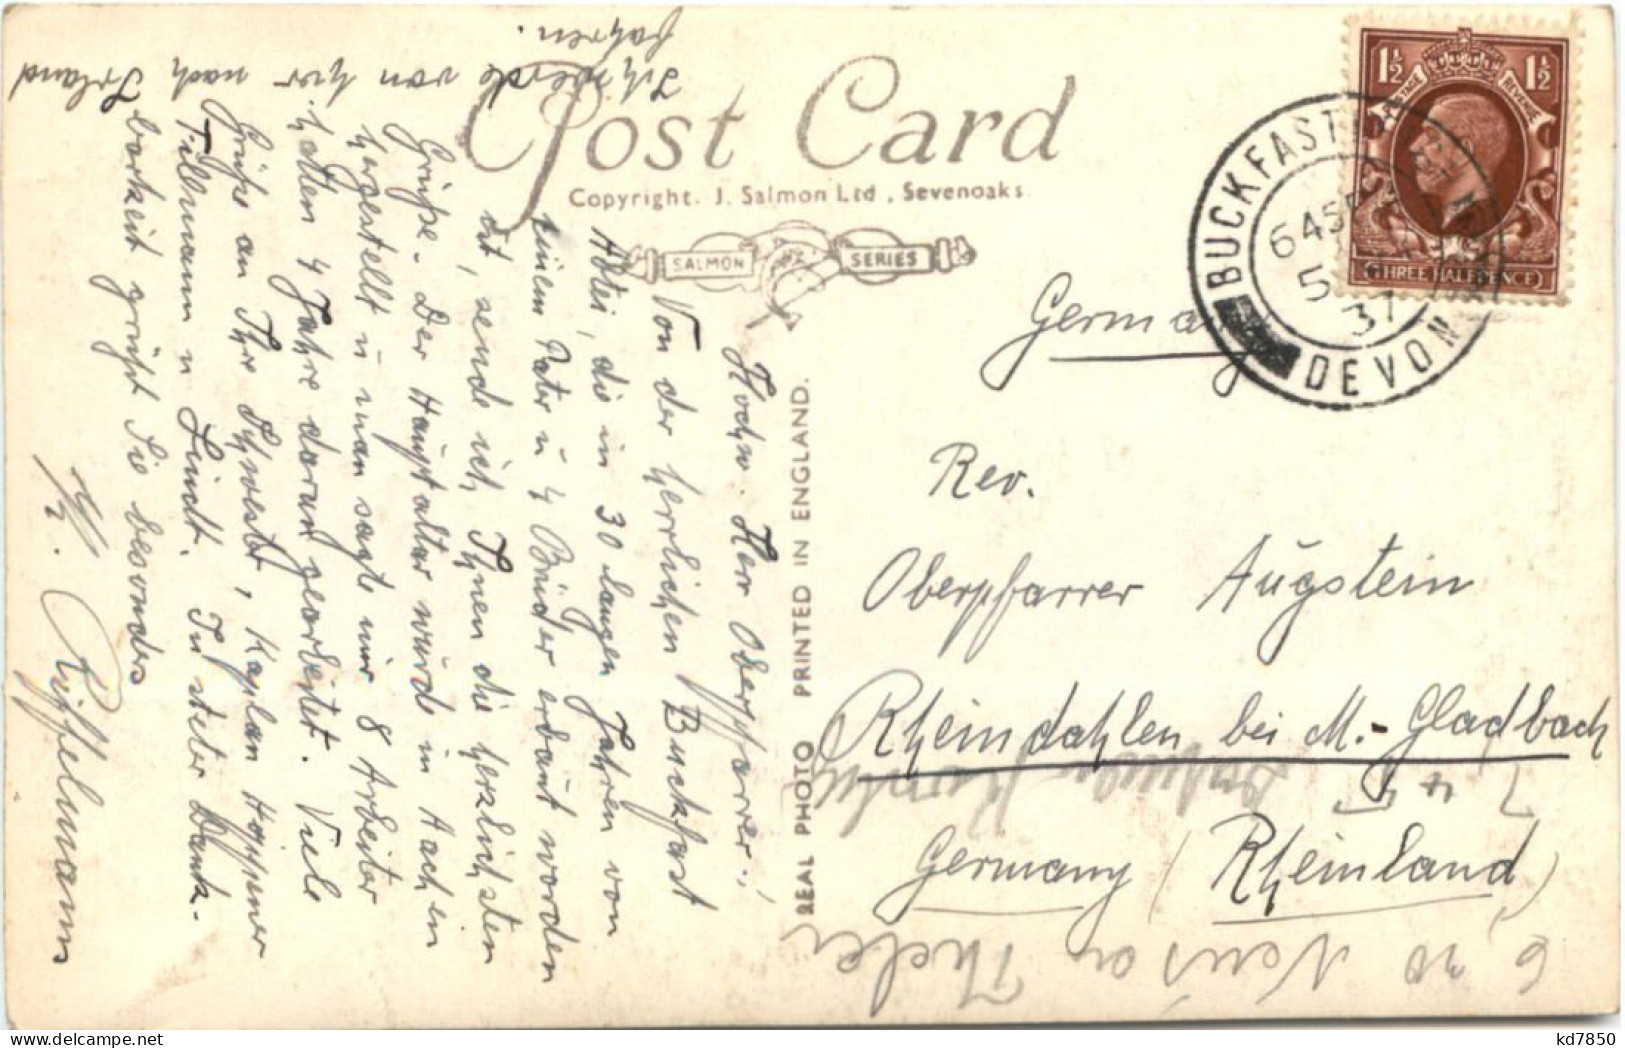 Post Card
Copyright. J. Salmon Ltd., Sevenoaks.
SALMON SERIES
REAL PHOTO PRINTED IN ENGLAND.
1½ 1½
POSTAGE REVENUE
THREE HALFPENCE
BUCKFASTLEIGH
645
5
37
DEVON
Germany
Rev.
Oberpfarrer Augstein
Rheindahlen bei M.-Gladbach
Germany (Rheinland)
Hochw. Herr Oberpfarrer!
Von der herrlichen Buckfast
Abtei, die in 30 langen Jahren von
einem Pater u 4 Brüder erbaut worden
ist, sende ich Ihnen die herzlichsten
Grüße. Der Hauptaltar wurde in Aachen
hergestellt u man sagte mir 8 Arbeiter
hätten 4 Jahre daran gearbeitet. Viele
Grüße an Ihre Schwester, Kaplan Höppener
Tillmann u Lindt. In steter Dank-
barkeit grüßt Sie besonders
Ich werde von hier nach Irland
fahren.
6 30